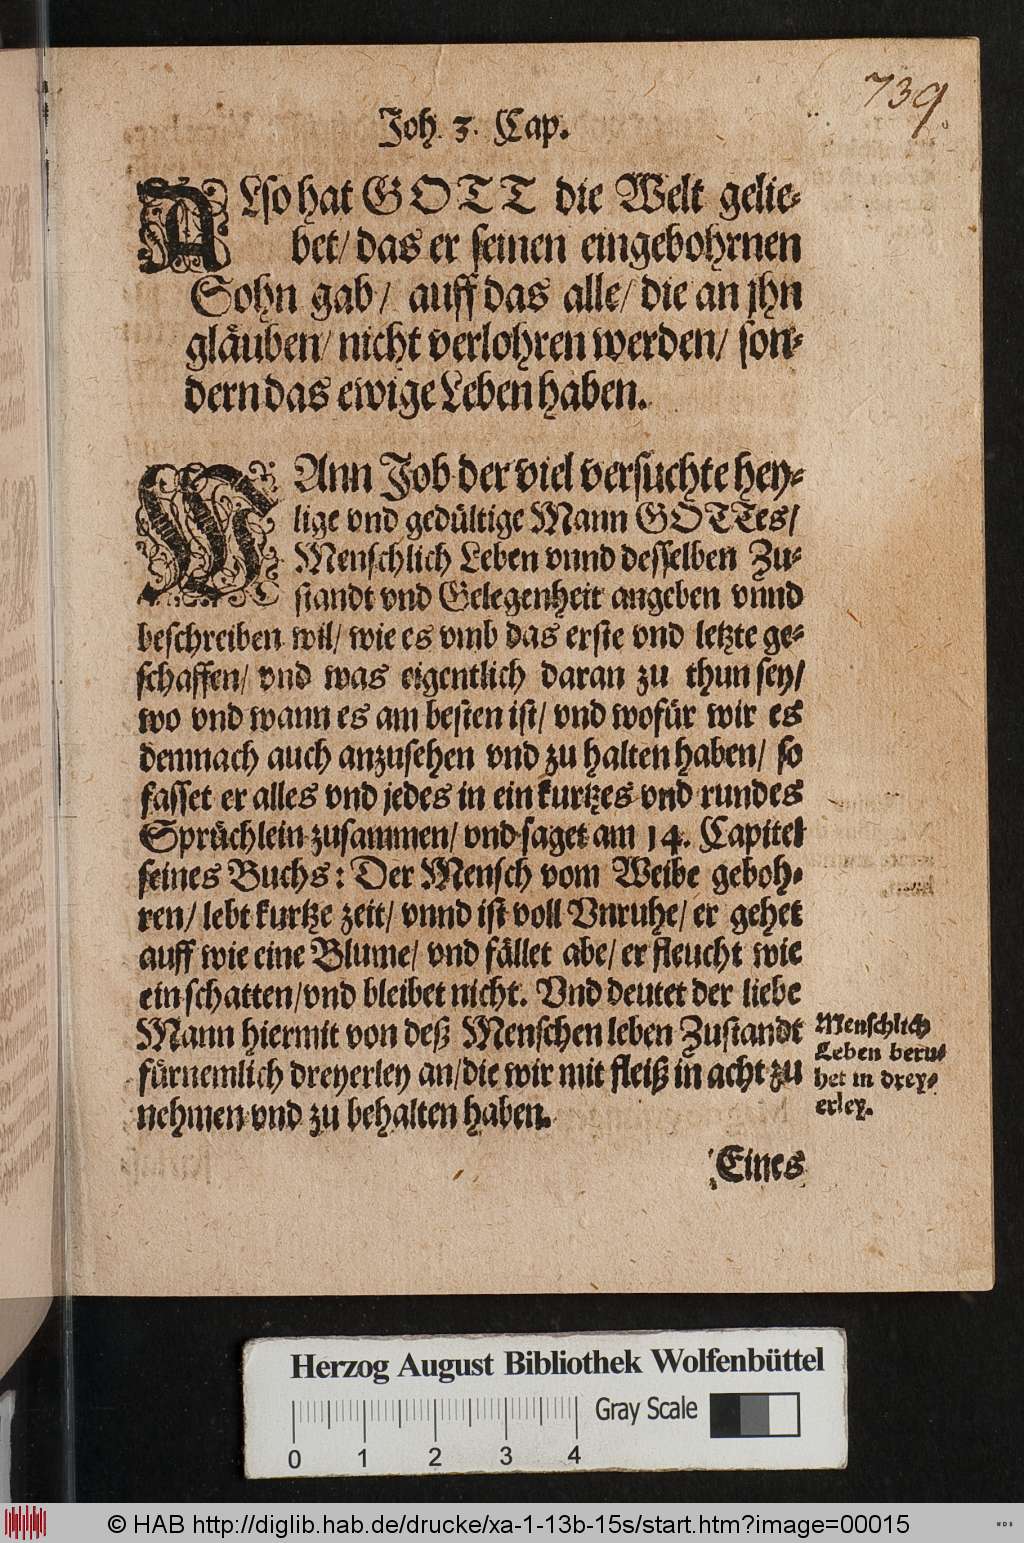 739
Joh. 3. Cap.
ALso hat GOTT die Welt gelie-
bet/ das er seinen eingebohrnen
Sohn gab/ auff das alle/ die an jhn
gläuben/ nicht verlohren werden/ son-
dern das ewige Leben haben.
WAnn Job der viel versuchte hey-
lige vnd gedültige Mann GOTTes/
Menschlich Leben vnnd desselben Zu-
standt vnd Gelegenheit angeben vnnd
beschreiben wil/ wie es vmb das erste vnd letzte ge-
schaffen/ vnd was eigentlich daran zu thun sey/
wo vnd wann es am besten ist/ vnd wofür wir es
demnach auch anzusehen vnd zu halten haben/ so
fasset er alles vnd jedes in ein kurtzes vnd rundes
Sprüchlein zusammen/ vnd saget am 14. Capitel
seines Buchs: Der Mensch vom Weibe geboh-
ren/ lebt kurtze zeit/ vnnd ist voll Vnruhe/ er gehet
auff wie eine Blume/ vnd fället abe/ er fleucht wie
ein schatten/ vnd bleibet nicht. Vnd deutet der liebe
Mann hiermit von deß Menschen leben Zustandt
fürnemlich dreyerley an/ die wir mit fleiß in acht zu
nehmen vnd zu behalten haben.
Menschlich
Leben beru-
het in drey-
erley.
Eines
Herzog August Bibliothek Wolfenbüttel
Gray Scale
0 1 2 3 4
© HAB http://diglib.hab.de/drucke/xa-1-13b-15s/start.htm?image=00015